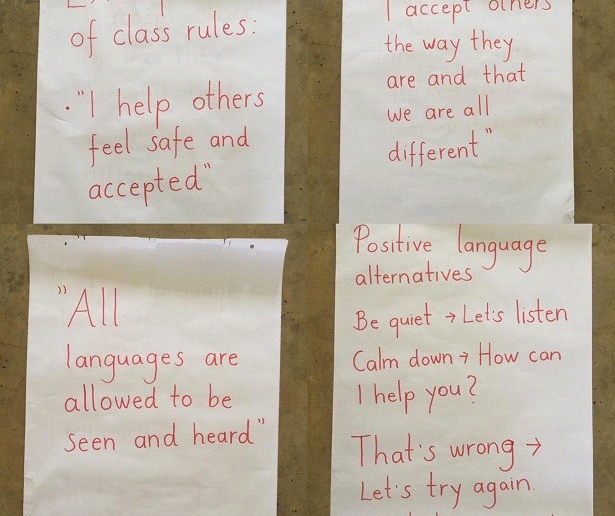 of class rules:
· "I help others
feel safe and
accepted"
I accept others
the way they
are and that
we are all
different"
"All
languages are
allowed to be
seen and heard"
Positive language
alternatives
Be quiet → Let's listen
Calm down → How can
I help you?
That's wrong →
Let's try again.